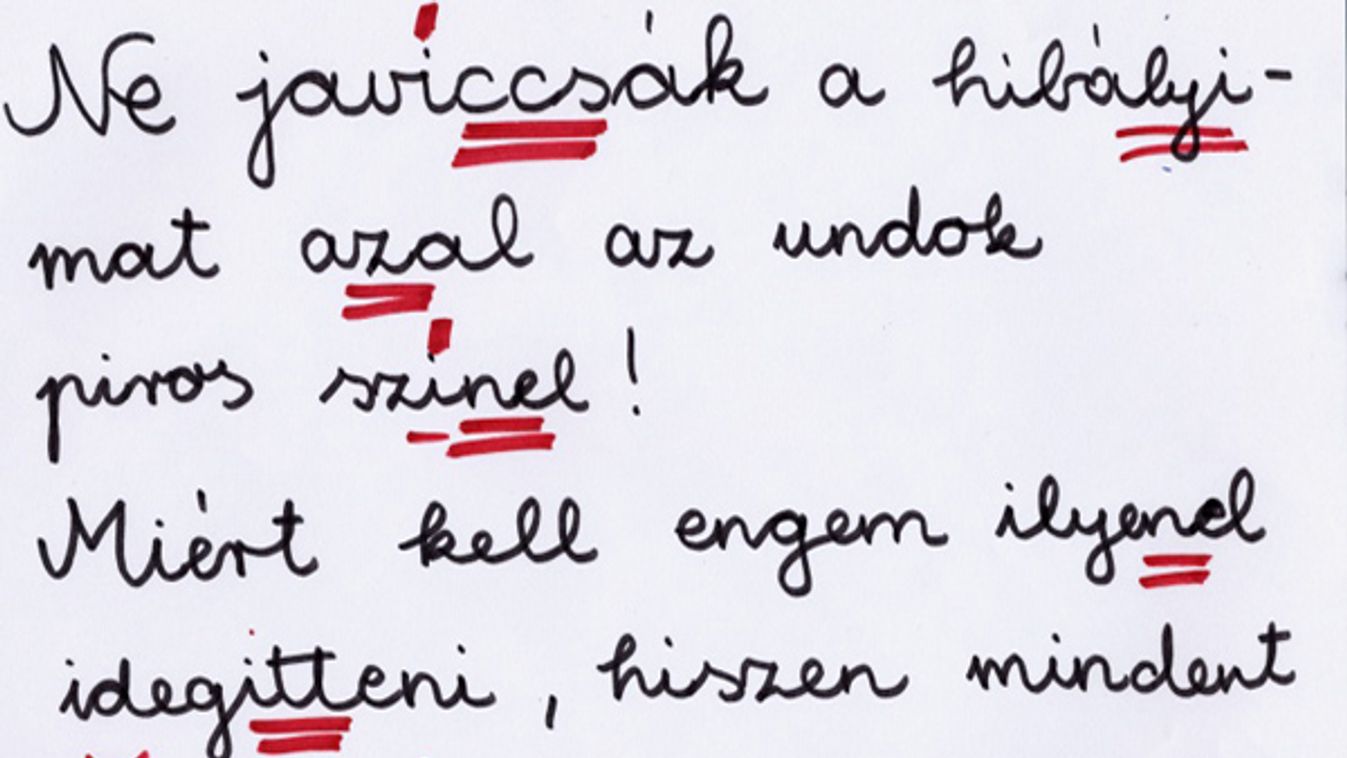 Ne javiccsák a hibályi-
mat azal az undok
piros szinel!
Miért kell engem ilyenel
idegitteni, hiszen mindent